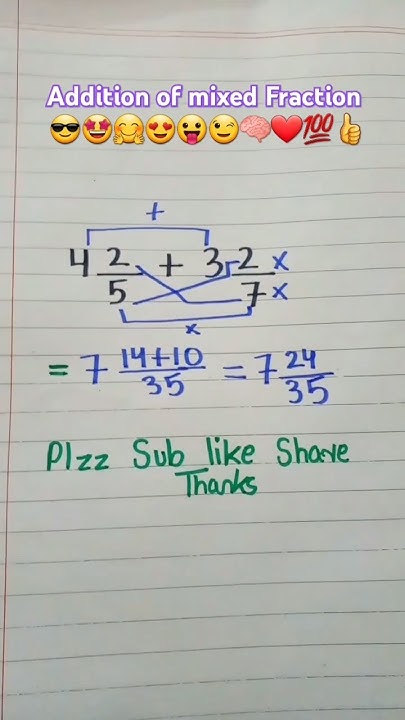 Addition of mixed Fraction
😎🤩🤗😍😛😉🧠❤️💯👍
+
4 2/5 + 3 2/7 x x
x
= 7 14+10/35 = 7 24/35
Plzz Sub like Share
Thanks